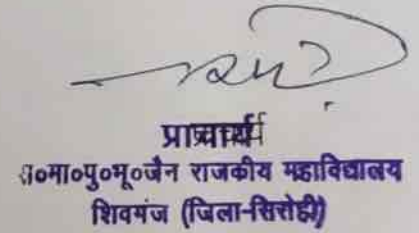 प्राचार्य
रा०मा०पु०भू०जैन राजकीय महाविद्यालय
शिवगंज (जिला-सिरोही)